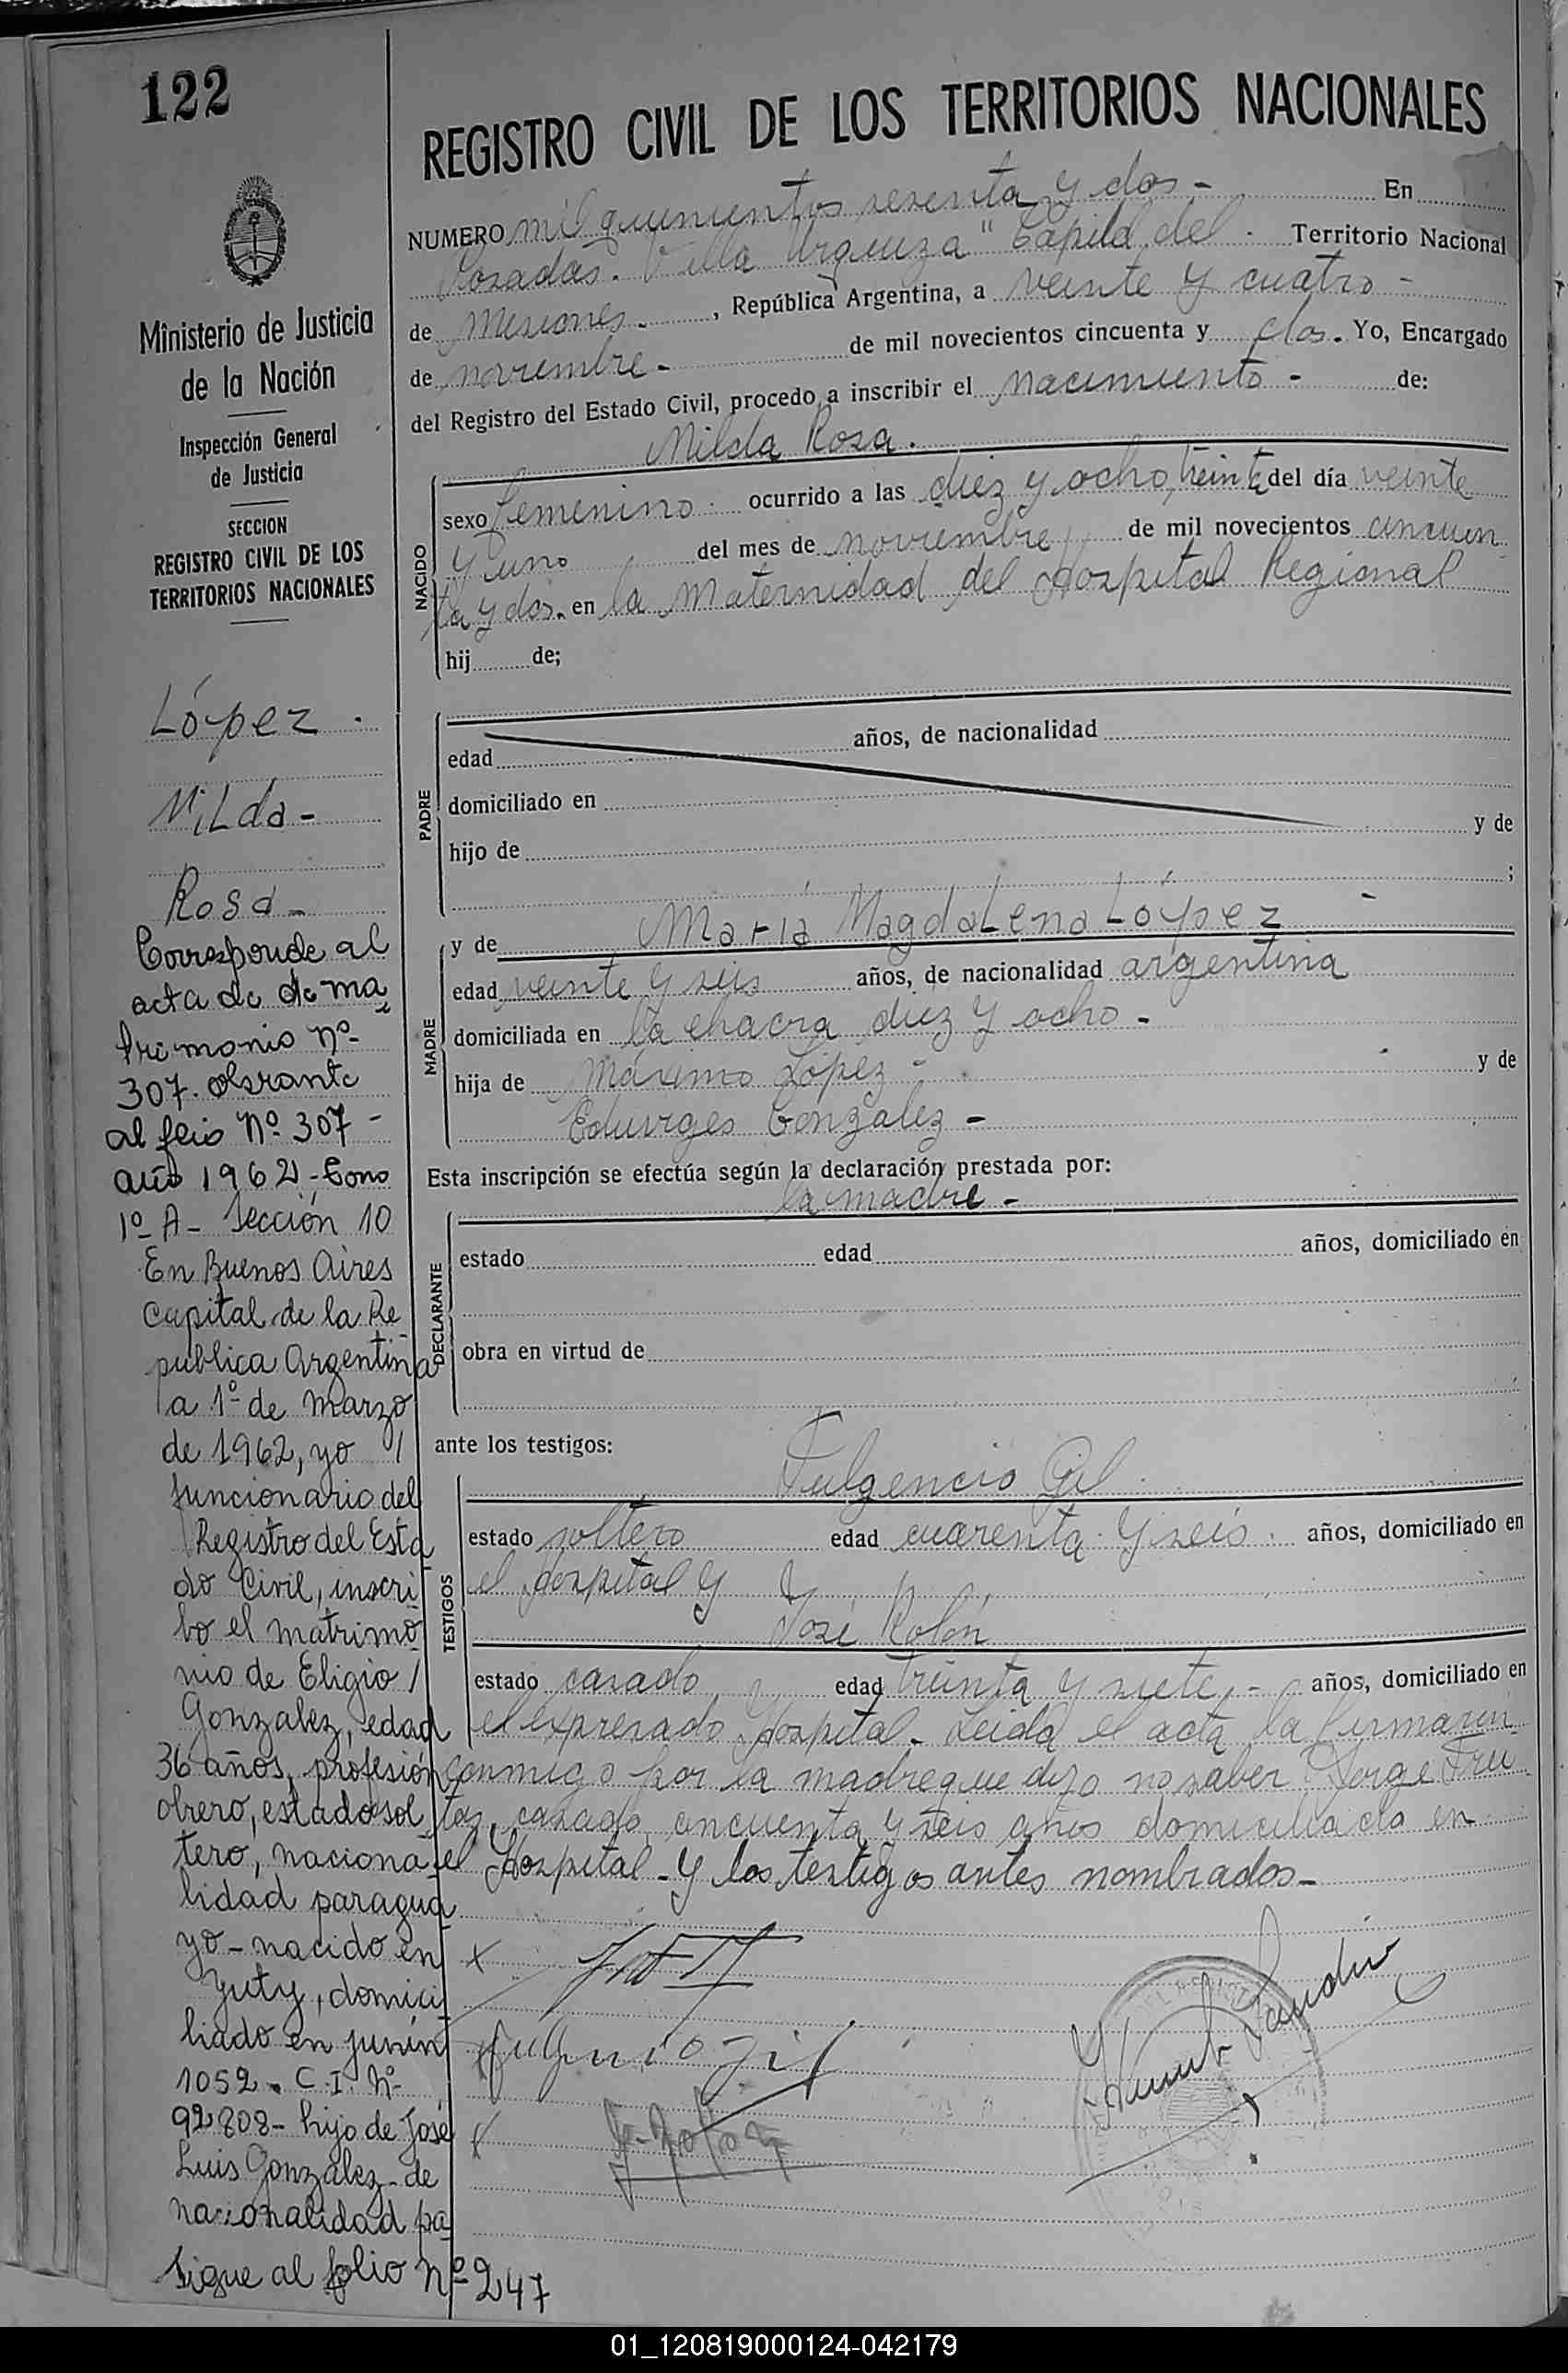 122
REGISTRO CIVIL DE LOS TERRITORIOS NACIONALES
NUMERO mil quinientos sesenta y dos - En
Posadas. Villa Urquiza" Capital del. Territorio Nacional
de Misiones. , República Argentina, a veinte y cuatro -
de noviembre - de mil novecientos cincuenta y dos. Yo, Encargado
del Registro del Estado Civil, procedo a inscribir el nacimiento - de:
Milda Rosa.
NACIDO
sexo femenino. ocurrido a las diez y ocho, treinta del día veinte
y uno del mes de noviembre de mil novecientos cincuen
ta y dos. en la Maternidad del Hospital Regional
hij de;
PADRE
edad años, de nacionalidad
domiciliado en
hijo de y de
;
MADRE
y de María Magdalena López -
edad veinte y seis años, de nacionalidad argentina
domiciliada en la chacra diez y ocho -
hija de Máximo López - y de
Eduviges Gonzalez -
Esta inscripción se efectúa según la declaración prestada por:
la madre -
DECLARANTE
estado edad años, domiciliado en
obra en virtud de
ante los testigos:
TESTIGOS
Fulgencio Gil.
estado soltero edad cuarenta y seis. años, domiciliado en
el hospital y
José Rolón
estado casado, edad treinta y siete, - años, domiciliado en
el expresado Hospital. Leida el acta la firmaron
conmigo por la madre que dijo no saber Jorge Fru
tos, casado, cincuenta y seis años domiciliado en
el Hospital - y los testigos antes nombrados -
Ministerio de Justicia
de la Nación
Inspección General
de Justicia
SECCION
REGISTRO CIVIL DE LOS
TERRITORIOS NACIONALES
López.
Milda -
Rosa -
Corresponde al
acta de de ma
trimonio Nº
307. obrante
al folio Nº 307 -
año 1962 - Tomo
1º A - Sección 10
En Buenos Aires
Capital de la Re
publica Argentina
a 1º de Marzo
de 1962, yo
funcionario del
Registro del Esta
do Civil, inscri
bo el matrimo
nio de Eligio
Gonzalez, edad
36 años, profesión
obrero, estado sol
tero, naciona
lidad paragua
yo - nacido en
Yuty, domici
liado en Junín
1052. C.I. Nº
92.808 - hijo de José
Luis Gonzalez - de
nacionalidad pa
Sigue al folio Nº 247
01_120819000124-042179